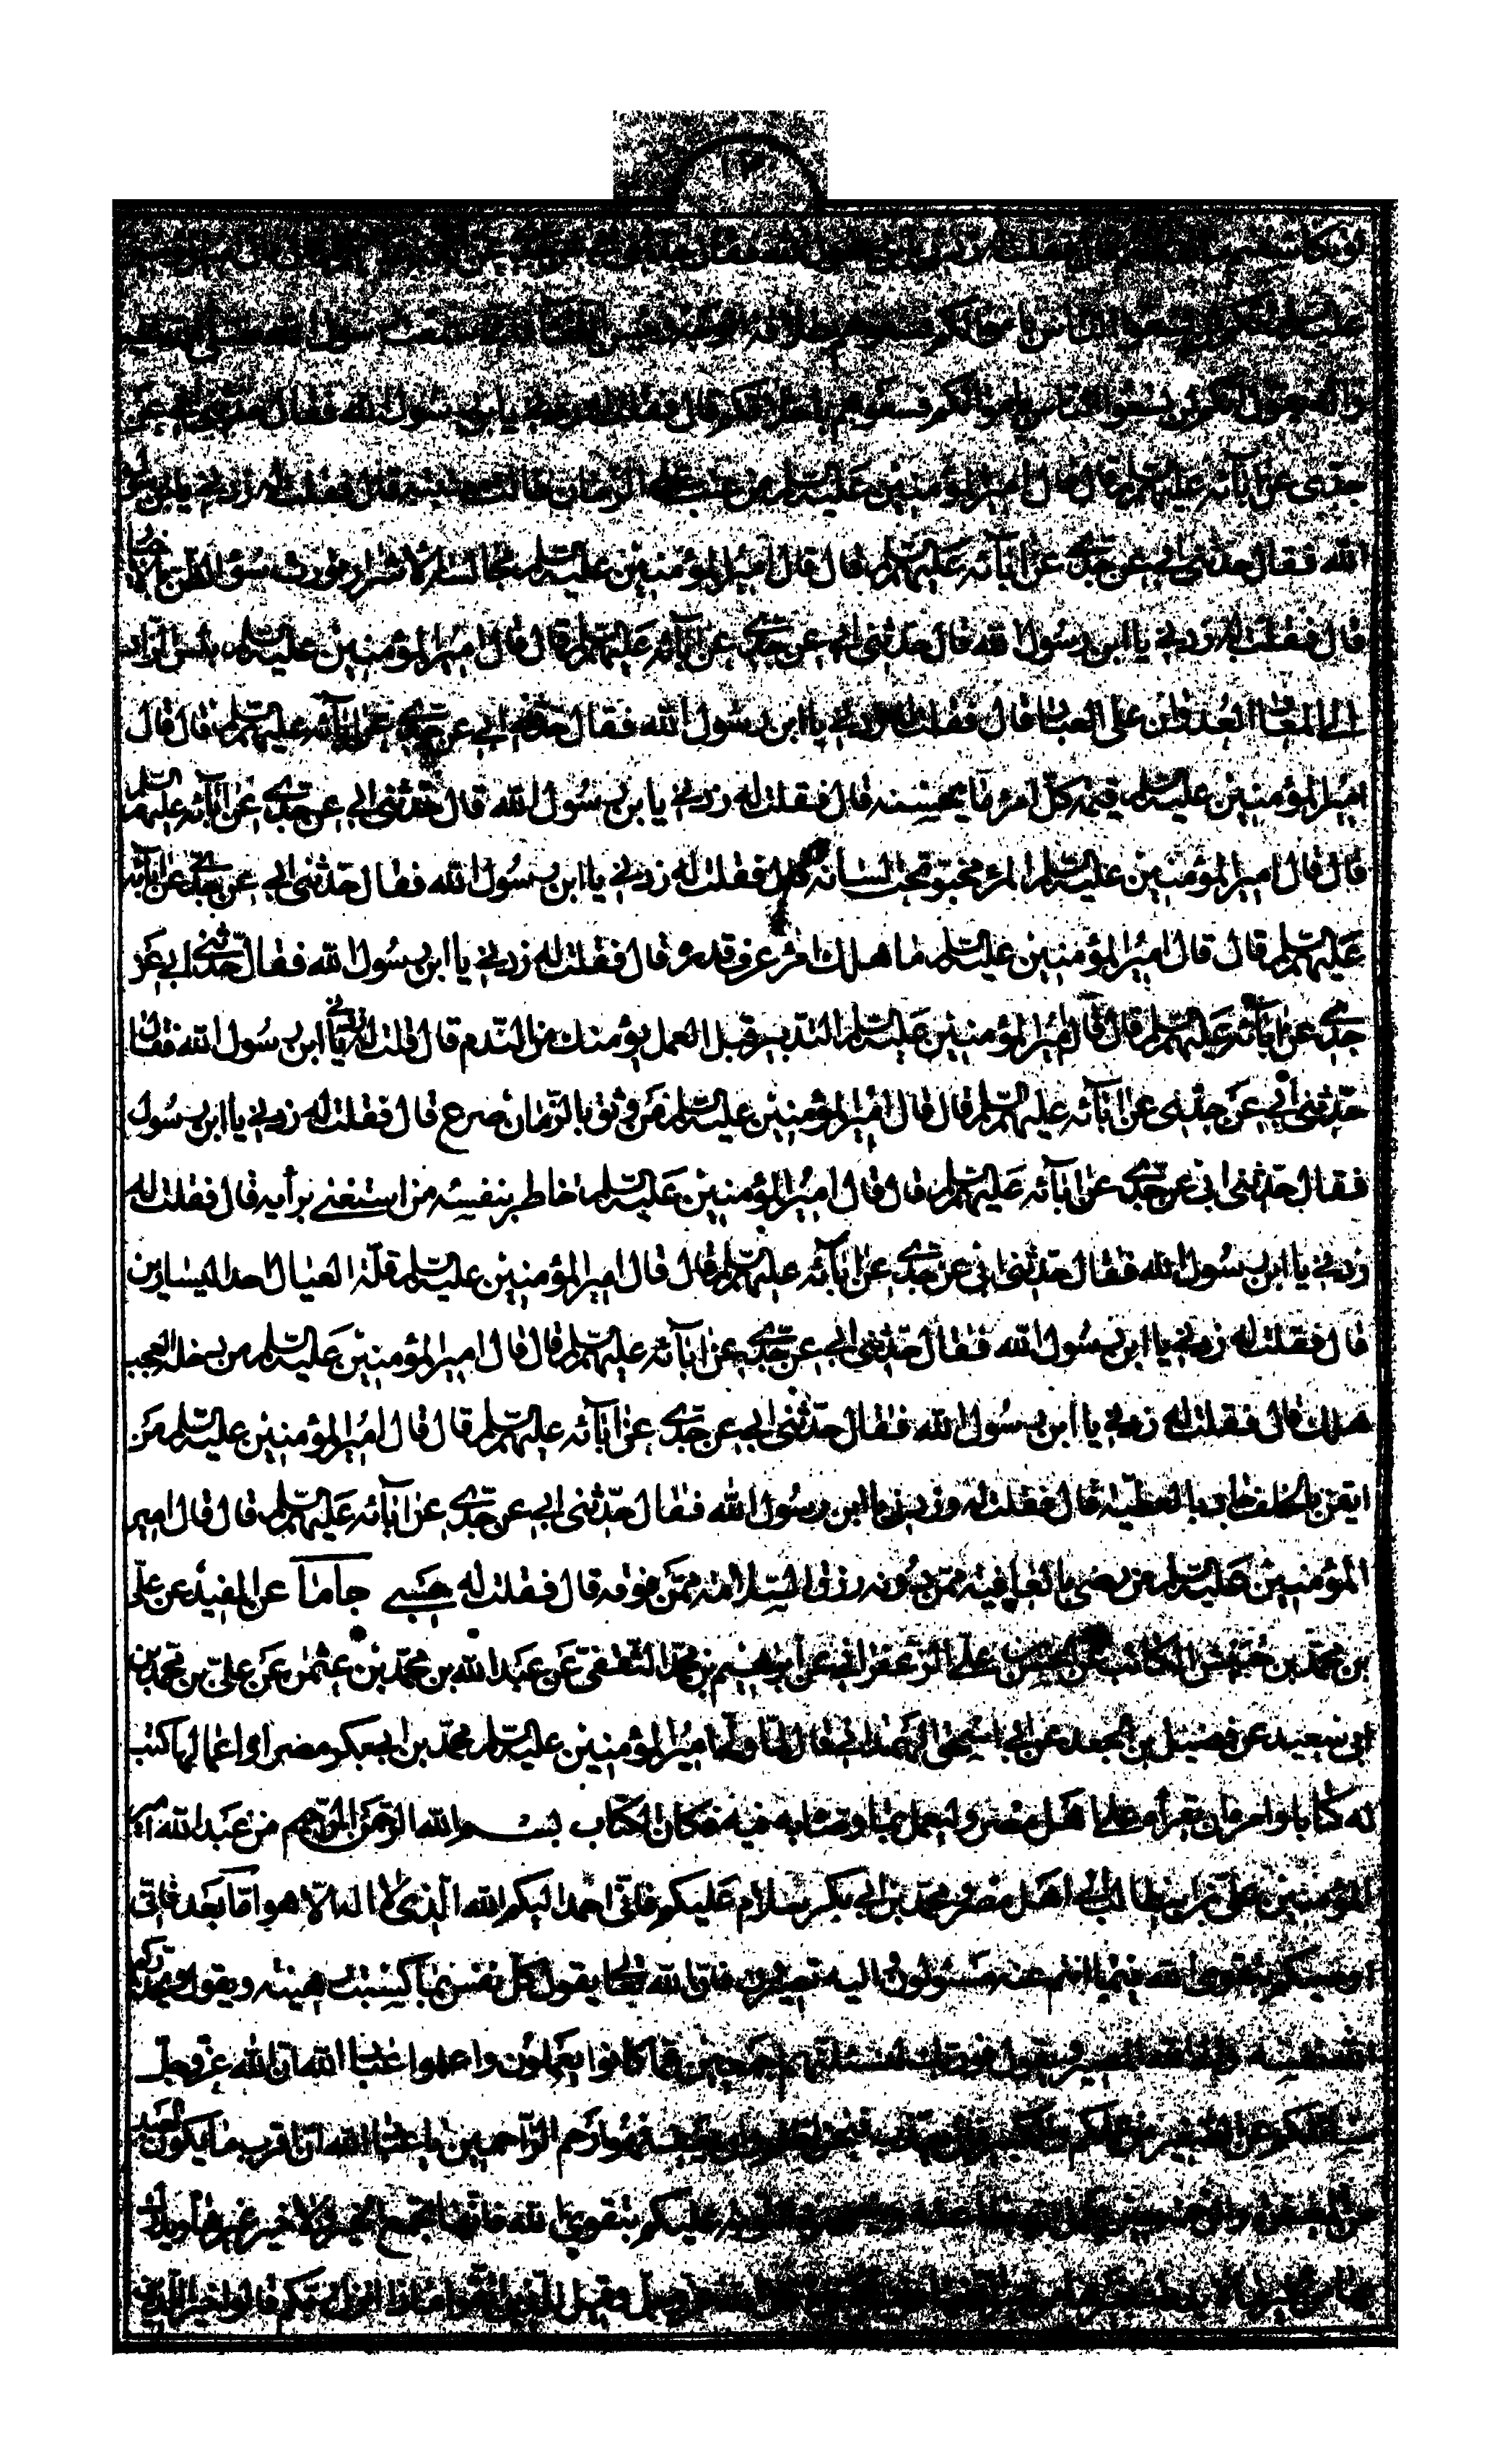 لو تكاشفتم
عليه السلام انكم لن تسعوا الناس باموالكم فسعوهم بطلاقة الوجه وحسن اللقاء فانى سمعت رسول الله صلى الله عليه
واله يقول انكم لن تسعوا الناس باموالكم فسعوهم باخلاقكم قال فقلت له زدنى يا ابن رسول الله فقال حدثنى ابى عن
جدى عن آبائه عليهم السلم قال قال امير المؤمنين عليه السلم من عتب على الزمان طالت معتبته قال فقلت له زدنى يا ابن رسول
الله فقال حدثنى ابى عن جدى عن آبائه عليهم السلم قال قال امير المؤمنين عليه السلم مجالسة الاشرار تورث سوء الظن بالاخيار
قال فقلت له زدنى يا ابن رسول الله قال حدثنى ابى عن جدى عن آبائه عليهم السلم قال قال امير المؤمنين عليه السلم بئس الزاد
الى المعاد العدوان على العباد قال فقلت له زدنى يا ابن رسول الله فقال حدثنى ابى عن جدى عن آبائه عليهم السلم قال قال
امير المؤمنين عليه السلم قيمة كل امرء ما يحسنه قال فقلت له زدنى يا بن رسول الله قال حدثنى ابى عن جدى عن آبائه عليهم السلم
قال قال امير المؤمنين عليه السلم المرء مخبو تحت لسانه قال فقلت له زدنى يا ابن رسول الله فقال حدثنى ابى عن جدى عن آبائه
عليهم السلم قال قال امير المؤمنين عليه السلم ما هلك امرء عرف قدره قال فقلت له زدنى يا ابن رسول الله فقال حدثنى ابى عن
جدى عن آبائه عليهم السلم قال قال امير المؤمنين عليه السلم التدبير قبل العمل يؤمنك من الندم قال قلت له زدنى يا ابن رسول الله فقال
حدثنى ابى عن جدى عن آبائه عليهم السلم قال قال امير المؤمنين عليه السلم من وثق بالزمان صرع قال فقلت له زدنى يا ابن رسول
فقال حدثنى ابى عن جدى عن آبائه عليهم السلم قال قال امير المؤمنين عليه السلم خاطر بنفسه من استغنى برأيه قال فقلت له
زدنى يا ابن رسول الله فقال حدثنى ابى عن جدى عن آبائه عليهم السلم قال قال امير المؤمنين عليه السلم قلة العيال احد اليسارين
قال فقلت له زدنى يا ابن رسول الله فقال حدثنى ابى عن جدى عن آبائه عليهم السلم قال قال امير المؤمنين عليه السلم من دخله العجب
هلك قال فقلت له زدنى يا ابن رسول الله فقال حدثنى ابى عن جدى عن آبائه عليهم السلم قال قال امير المؤمنين عليه السلم من
ايقن بالخلف جاد بالعطية قال فقلت له زدنى يا ابن رسول الله فقال حدثنى ابى عن جدى عن آبائه عليهم السلم قال قال امير
المؤمنين عليه السلم من رضى بالعافية ممن دونه رزق السلامة ممن فوقه قال فقلت له حسبى جا ما عن المفيد عن على
بن محمد بن حبيش الكاتب عن الحسن بن على الزعفرانى عن ابرهيم بن محمد الثقفى عن عبد الله بن محمد بن عثمن عن على بن محمد بن
ابى سعيد عن فضيل بن الجعد عن ابى اسحق الهمدانى قال لما ولى امير المؤمنين عليه السلم محمد بن ابى بكر مصر و اعمالها كتب
له كتابا و امره ان يقرأه على اهل مصر وليعمل بما وصاه به فيه فكان الكتاب بسم الله الرحمن الرحيم من عبد الله امير
المؤمنين على بن ابى طالب الى اهل مصر ومحمد بن ابى بكر سلام عليكم فانى احمد اليكم الله الذى لا اله الا هو اما بعد فانى
اوصيكم بتقوى الله فيما انتم عنه مسئولون و اليه تصيرون فان الله تعالى يقول كل نفس بما كسبت رهينة و يقول ويحذركم
الله نفسه والى الله المصير ويقول فوربك لنسئلنهم اجمعين عما كانوا يعملون واعلموا عباد الله ان الله عز وجل
سائلكم عن الصغير من عملكم والكبير فان يعذب فنحن اظلم وان يعف فهو ارحم الراحمين يا عباد الله ان اقرب ما يكون العبد
عليكم بتقوى الله فانها تجمع الخير ولا خير غيرها ويدرك
وقيل للذين اتقوا ماذا انزل ربكم قالوا خيرا للذين